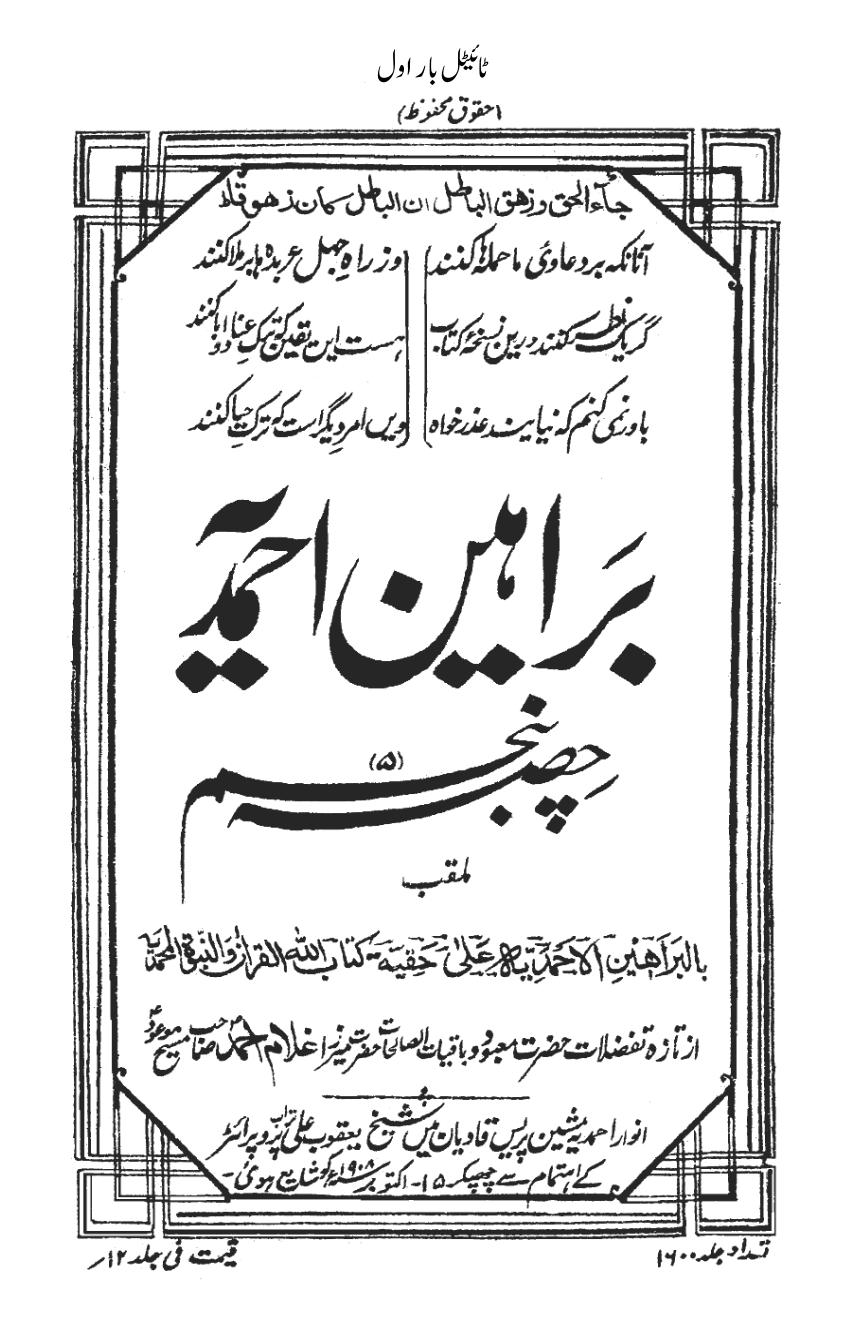 ٹائیٹل بار اول
(حقوق محفوظ)
جآء الحق و زھق الباطل ان الباطل کان زھوقا
آنانکہ بر دعاوئ ما حملہ ہا کنند وز راہِ جہل عربدہ ہا برملا کنند
گر یک نظر کنند درین نسخۂ کتاب ہست این یقین کہ ترکِ عناد و ابا کنند
باور نمی کنم کہ نیایند عذر خواہ ویں امرِ دیگر است کہ ترکِ حیا کنند
بَراہین احمدیّہ
حِصّہ پنجم
(۵)
ملقب
بالبَرَاھِیْنِ الاَحْمَدِیَّہ عَلیٰ حَقِیَۃ کتاب اللہ القراٰن و النّبوّۃ المحمدیّۃ
از تازہ تفضلات حضرت معبود و باقیات الصالحات حضرت میرزا غلام احمد صاحب مسیح موعودؑ
انوار احمدیہ مشین پریس قادیان میں شیخ یعقوب علی تراب پروپرائٹر
کے اہتمام سے چھپکر ۱۵۔ اکتوبر ۱۹۰۸ء کو شایع ہوئی۔
تعداد جلد ۱۶۰۰
قیمت فی جلد ۱۲؍